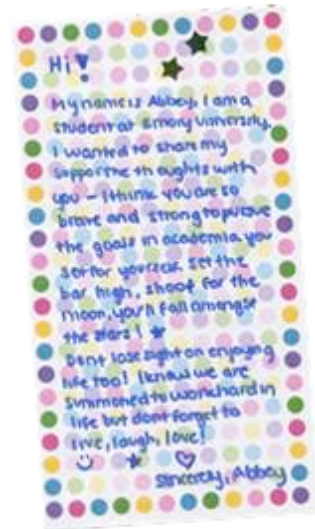 Hi!
My name is Abbey, I am a
student at Emory University.
I wanted to share my
supportive thoughts with
you - i think you are so
brave and strong to pursue
the goals in academia you
set for yourself. Set the
bar high, shoot for the
moon, you'll fall amongst
the stars!
Dont lose sight on enjoying
life too! I know we are
summoned to work hard in
life but dont forget to
live, laugh, love!
Sincerely, Abbey